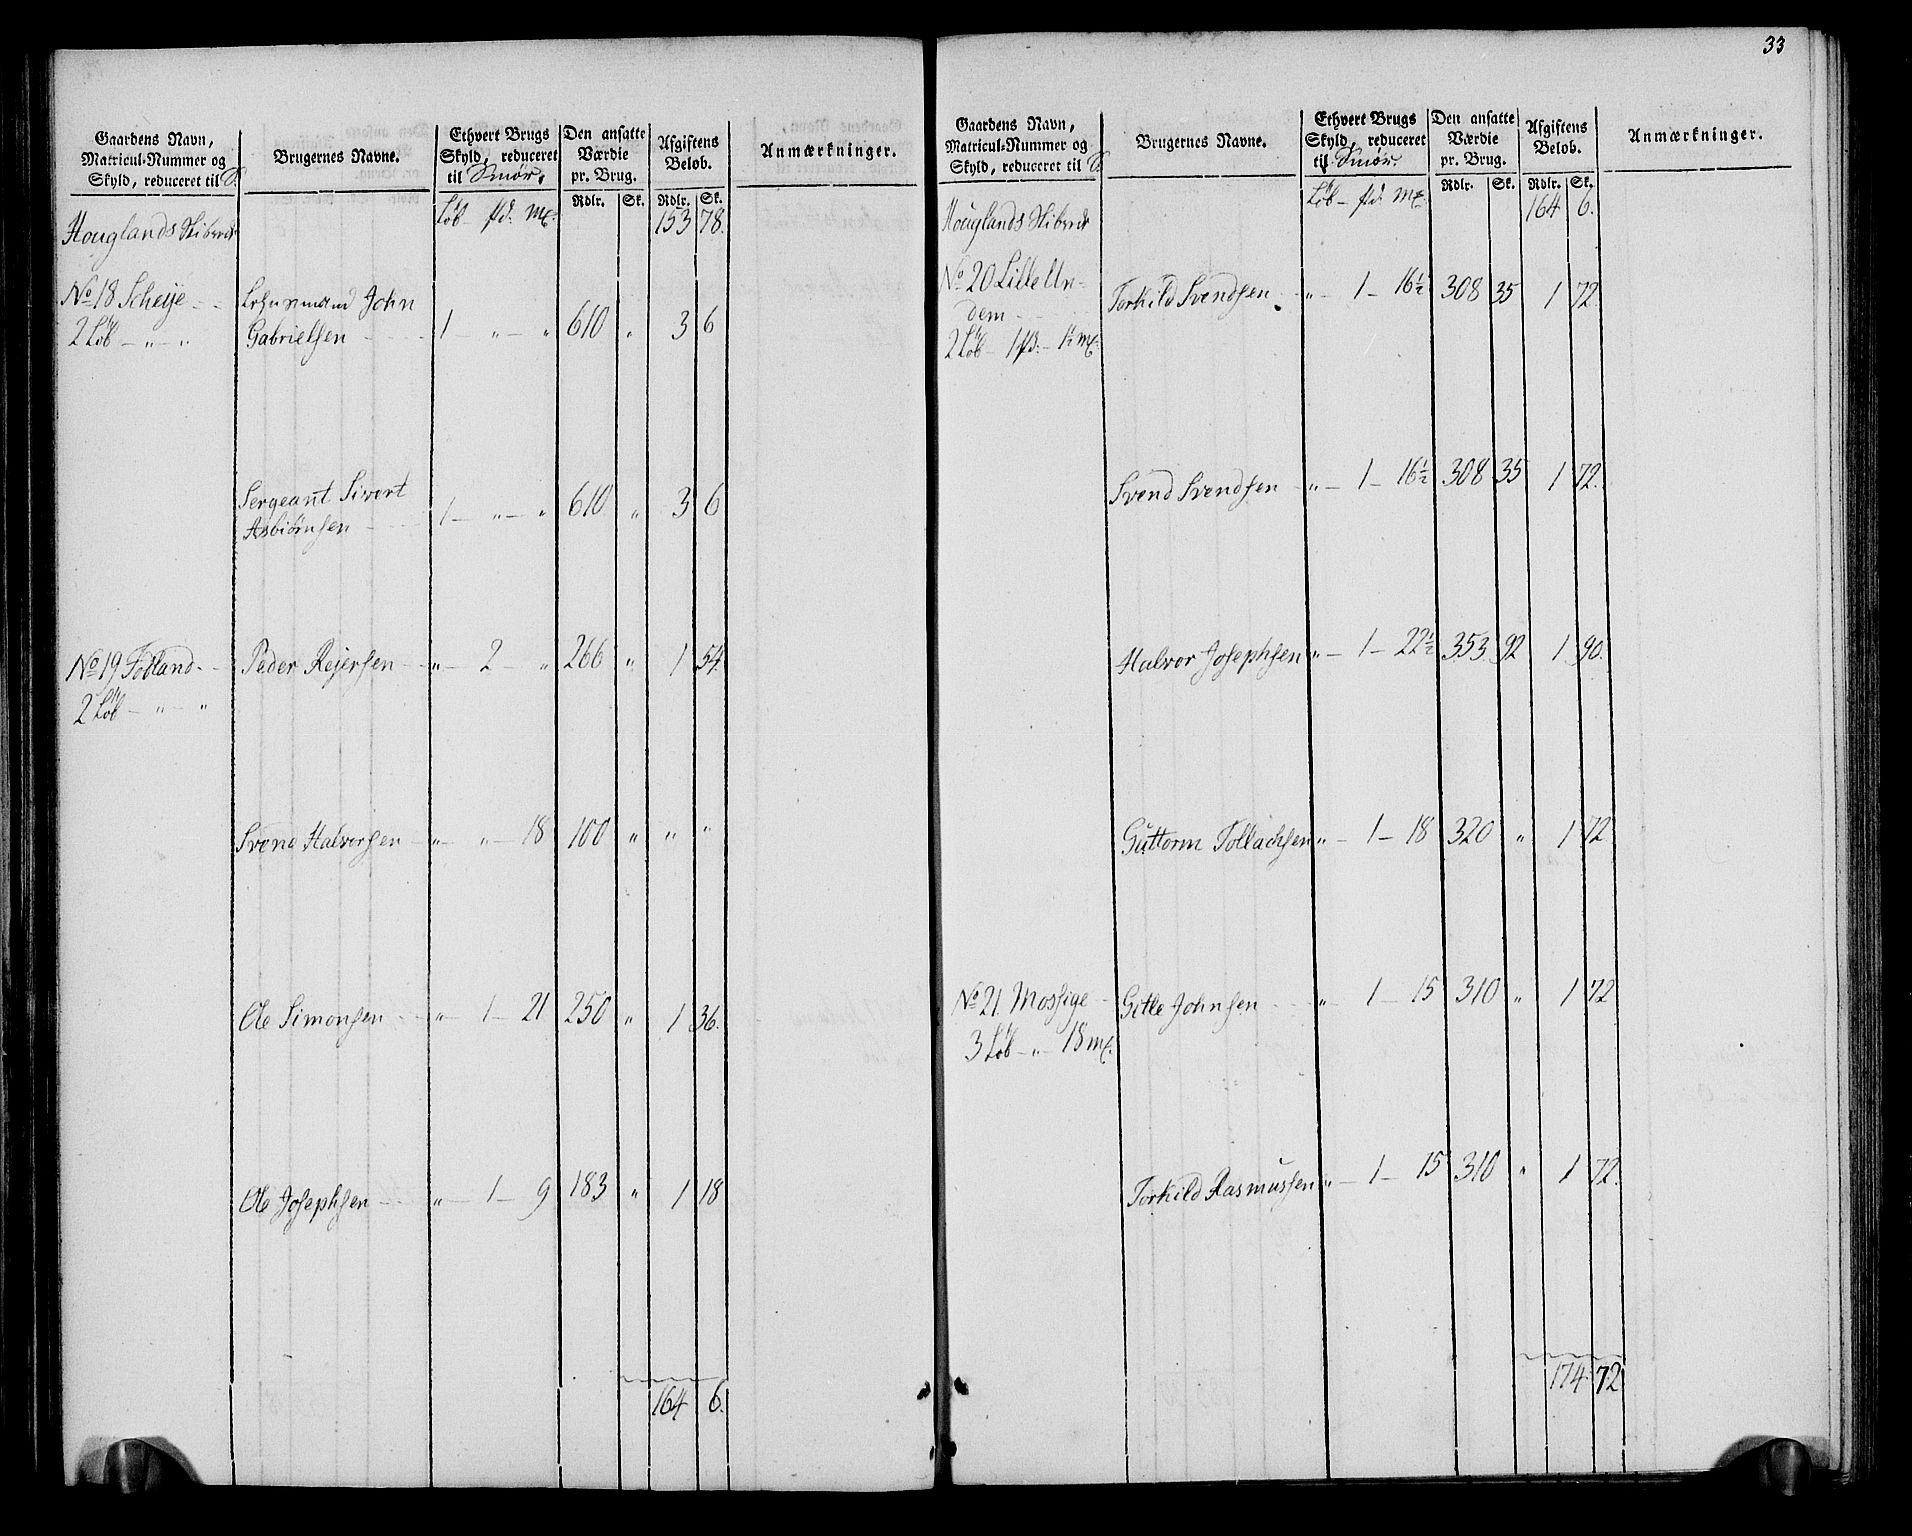 Gaardens Navn,
Matricul-Nummer og
Skyld, reduceret til S.
Brugernes Navne.
Ethvert Brugs
Skyld, reduceret
til Smør.
Den ansatte
Værdie
pr. Brug.
Afgiftens
Beløb.
Anmærkninger.
Rdlr. Sk. Rdlr. Sk.
Houglands Skibrede Løb — pd. mk. 153 78.
No 18 Scheije Lehnsmand John
2 Løb — " — " Gabrielsen 1 " — " 610 " 3 6
Sergeant Sivert
Asbiørnsen 1 — " — " 610 " 3 6
No 19 Fodland Peder Rejersen " — 2 — " 266 " 1 54.
2 Løb — " — "
Svend Halvorsen " — " — 18 100 " " "
Ole Simonsen " — 1 — 21 250 " 1 36.
Ole Josephsen " — 1 — 9 183 " 1 18
164 6.
33
Gaardens Navn,
Matricul-Nummer og
Skyld, reduceret til S.
Brugernes Navne.
Ethvert Brugs
Skyld, reduceret
til Smør.
Den ansatte
Værdie
pr. Brug.
Afgiftens
Beløb.
Anmærkninger.
Rdlr. Sk. Rdlr. Sk.
Houglands Skibrede Løb — pd. mk. 164 6.
No 20 Lille Un-
dem Torkild Svendsen " — 1 — 16½ 308 35 1 72.
2 Løb — 1 pd. — 1½ mk.
Svend Svendsen " — 1 — 16½ 308 35 1 72.
Halvor Josephsen " — 1 — 22½ 353 92 1 90.
Guttorm Tollachsen " — 1 — 18 320 " 1 72
No 21 Mossige Gitle Johnsen " 1 — 15 310 " 1 72
3 Løb — " — 18 mk.
Torkild Rasmussen " — 1 — 15 310 " 1 72.
174 72